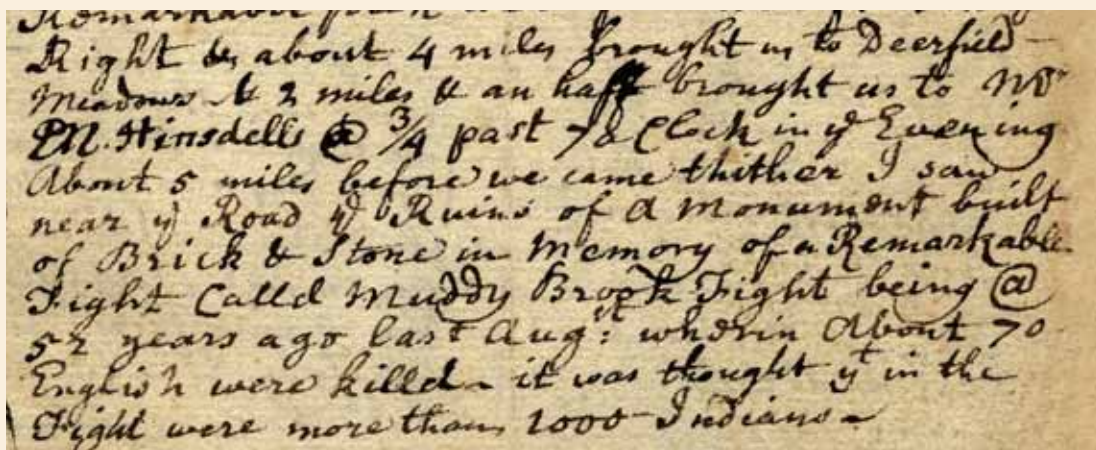 Remarkable
Right & about 4 miles brought us to Deerfield –
Meadows & 2 miles & an haff brought us to Mr
EM. Hinsdells @ 3/4 past 7 o Clock in ye Evening
About 5 miles before we came thither I saw
near ye Road ye Ruins of a Monument built
of Brick & Stone in Memory of a Remarkable
Fight Calld Muddy Brook Fight being @
52 years ago last Augst: wherin About 70
English were killd – it was thought yt in the
Fight were more than 1000 Indians –